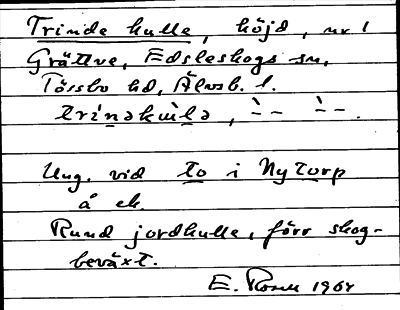 Trinde kulle, höjd, nr 1
Grättve, Edsleskogs sn,
Tössbo hd, Älvsb. l.
trinəkulə, `-- `--.
Ung. vid to i Nytorp
å ek.
Rund jordkulle, förr skog-
beväxt.
E. 1964